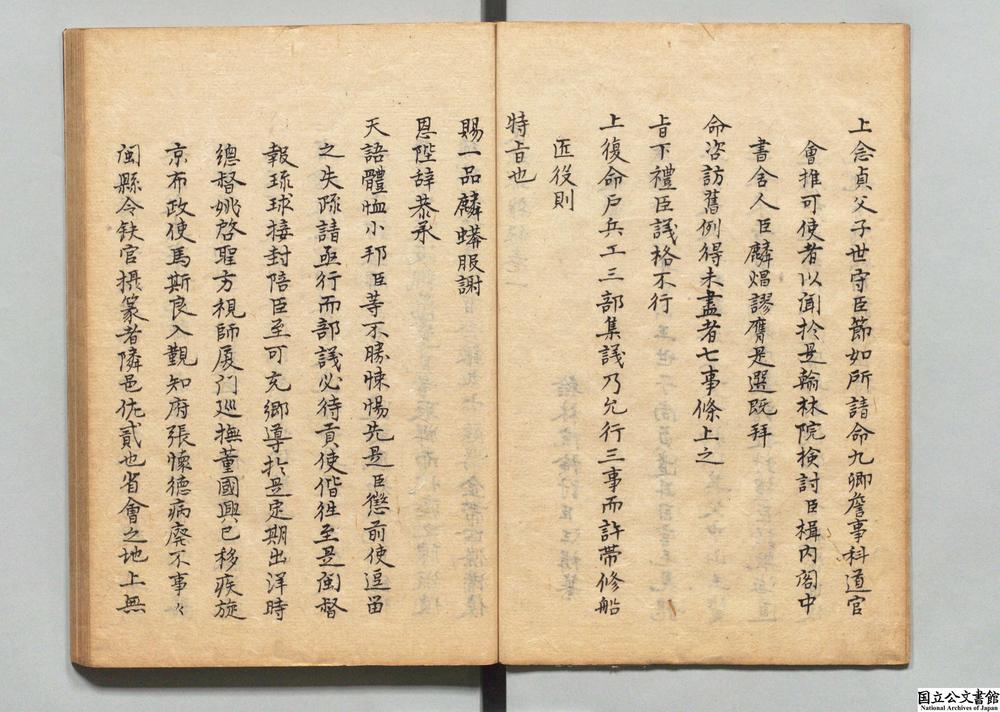 上念貞父子世守臣節如所請命九卿詹事科道官
會推可使者以聞於是翰林院檢討臣楫內閣中
書舍人臣麟焻謬膺是選既拜
命咨訪舊例得未盡者七事條上之
旨下禮臣議格不行
上復命戶兵工三部集議乃允行三事而許帶修船
匠役則
特旨也
賜一品麟蟒服謝
恩陛辞恭承
天語體恤小邦臣等不勝悚惕先是臣懲前使逗畱
之失疏請亟行而部議必待貢使偕徃至是閩督
報琉球接封陪臣至可充鄉導於是定期出洋時
總督姚啓聖方視師厦门巡撫董國興已移疾旋
京布政使馬斯良入覲知府張懷德病廢不事々
閩縣令鈌官攝篆者隣邑佐貳也省會之地上無
国立公文書館
National Archives of Japan